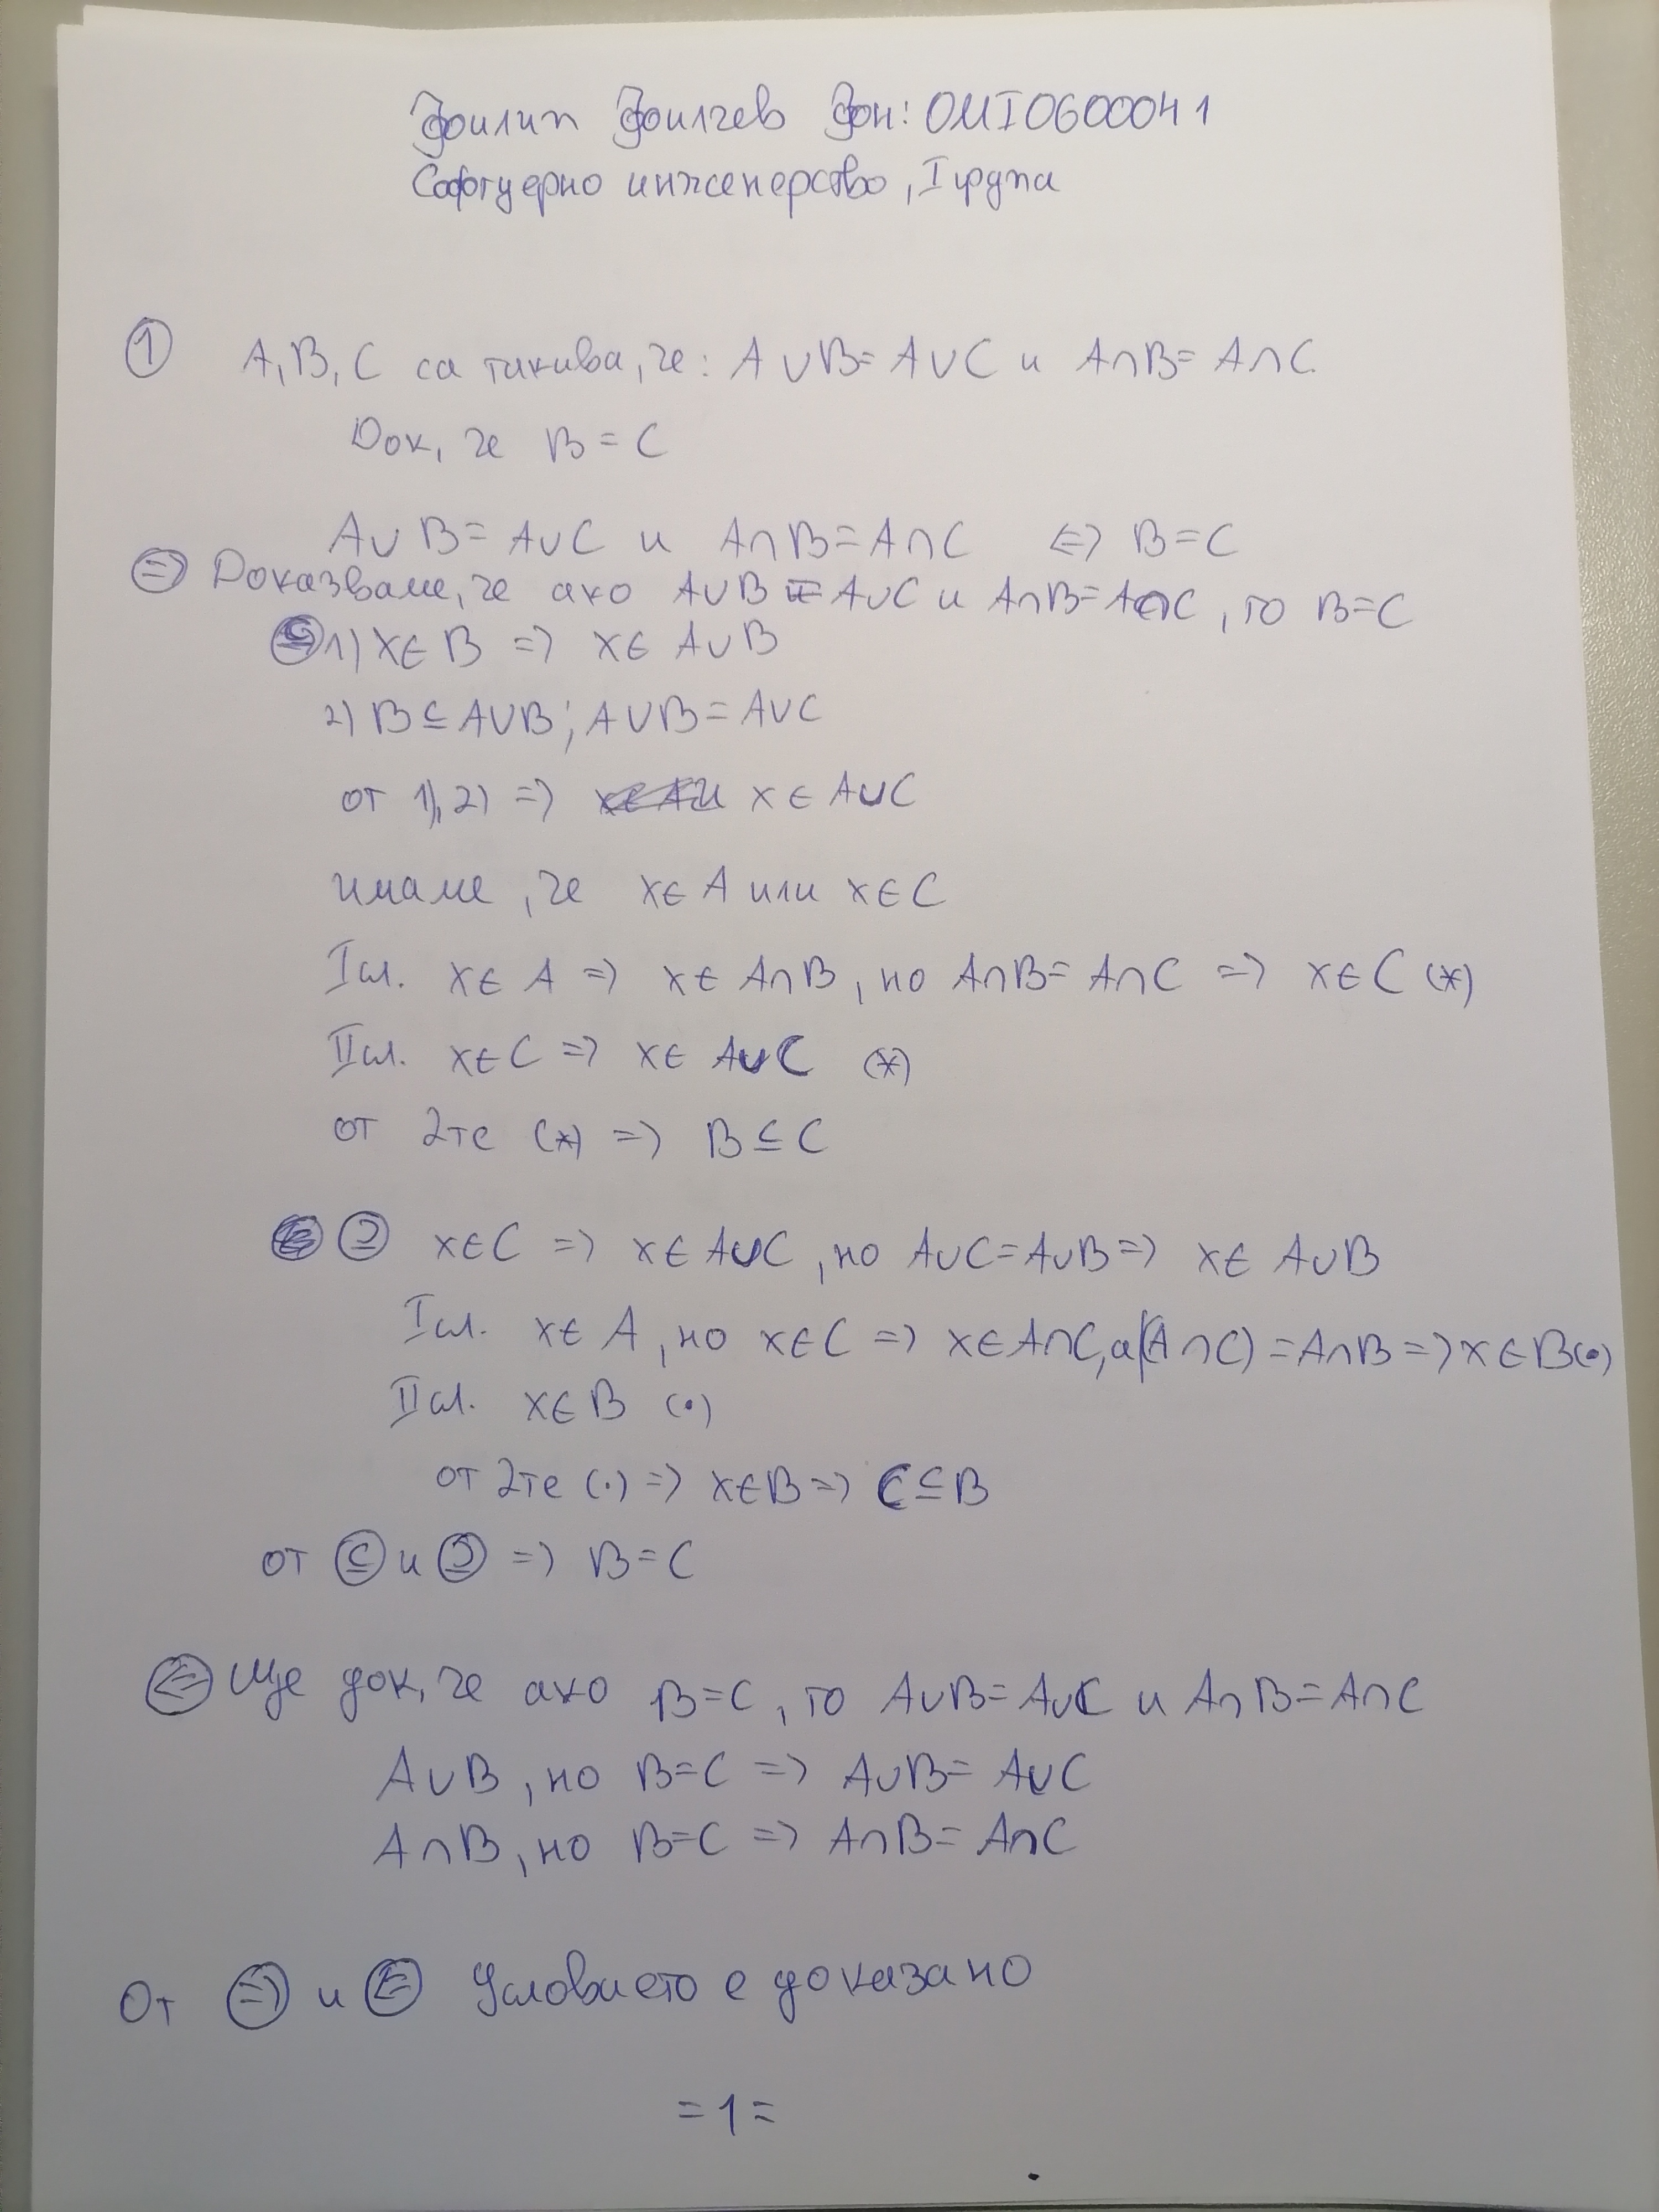 Филип Филчев Фн: 0MI0600041
Софтуерно инженерство, I група
① A, B, C са такива, че: A ∪ B = A ∪ C и A ∩ B = A ∩ C
Док, че B = C
A ∪ B = A ∪ C и A ∩ B = A ∩ C <=> B = C
(=>) Доказваме, че ако A ∪ B = A ∪ C и A ∩ B = A ∩ C, то B = C
(⊆) 1) x ∈ B => x ∈ A ∪ B
2) B ⊆ A ∪ B; A ∪ B = A ∪ C
от 1), 2) => x ∈ A ∪ C
имаме, че x ∈ A или x ∈ C
I сл. x ∈ A => x ∈ A ∩ B, но A ∩ B = A ∩ C => x ∈ C (*)
II сл. x ∈ C => x ∈ A ∪ C (*)
от 2те (*) => B ⊆ C
(⊇) x ∈ C => x ∈ A ∪ C, но A ∪ C = A ∪ B => x ∈ A ∪ B
I сл. x ∈ A, но x ∈ C => x ∈ A ∩ C, а (A ∩ C) = A ∩ B => x ∈ B (•)
II сл. x ∈ B (•)
от 2те (•) => x ∈ B => C ⊆ B
от (⊆) и (⊇) => B = C
(<=) Ще док, че ако B = C, то A ∪ B = A ∪ C и A ∩ B = A ∩ C
A ∪ B, но B = C => A ∪ B = A ∪ C
A ∩ B, но B = C => A ∩ B = A ∩ C
От (=>) и (<=) Условието е доказано
= 1 =